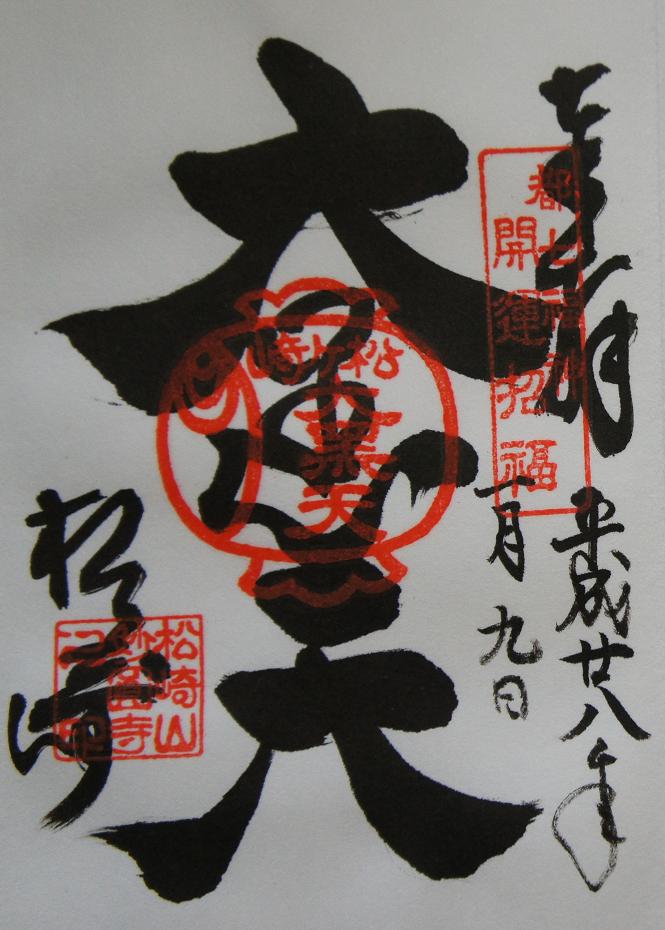 奉拝
平成廿八年
一月九日
都七福神
開運招福
大黒天
松ヶ崎
大黒天
松ヶ崎
松崎山
妙圓寺
之印